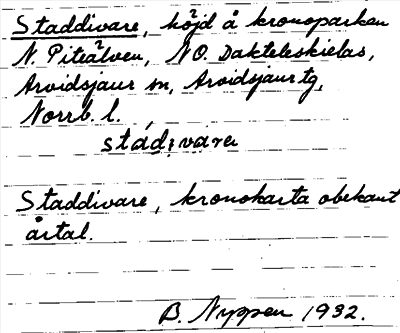 Staddivare, höjd å kronoparken
N. Piteälven, NO. Dakteleskielas,
Arvidsjaur sn, Arvidsjaur tg,
Norrb. l.
stád;varɛ
Staddivare, kronokarta obekant
årtal.
B. Nyppen 1932.